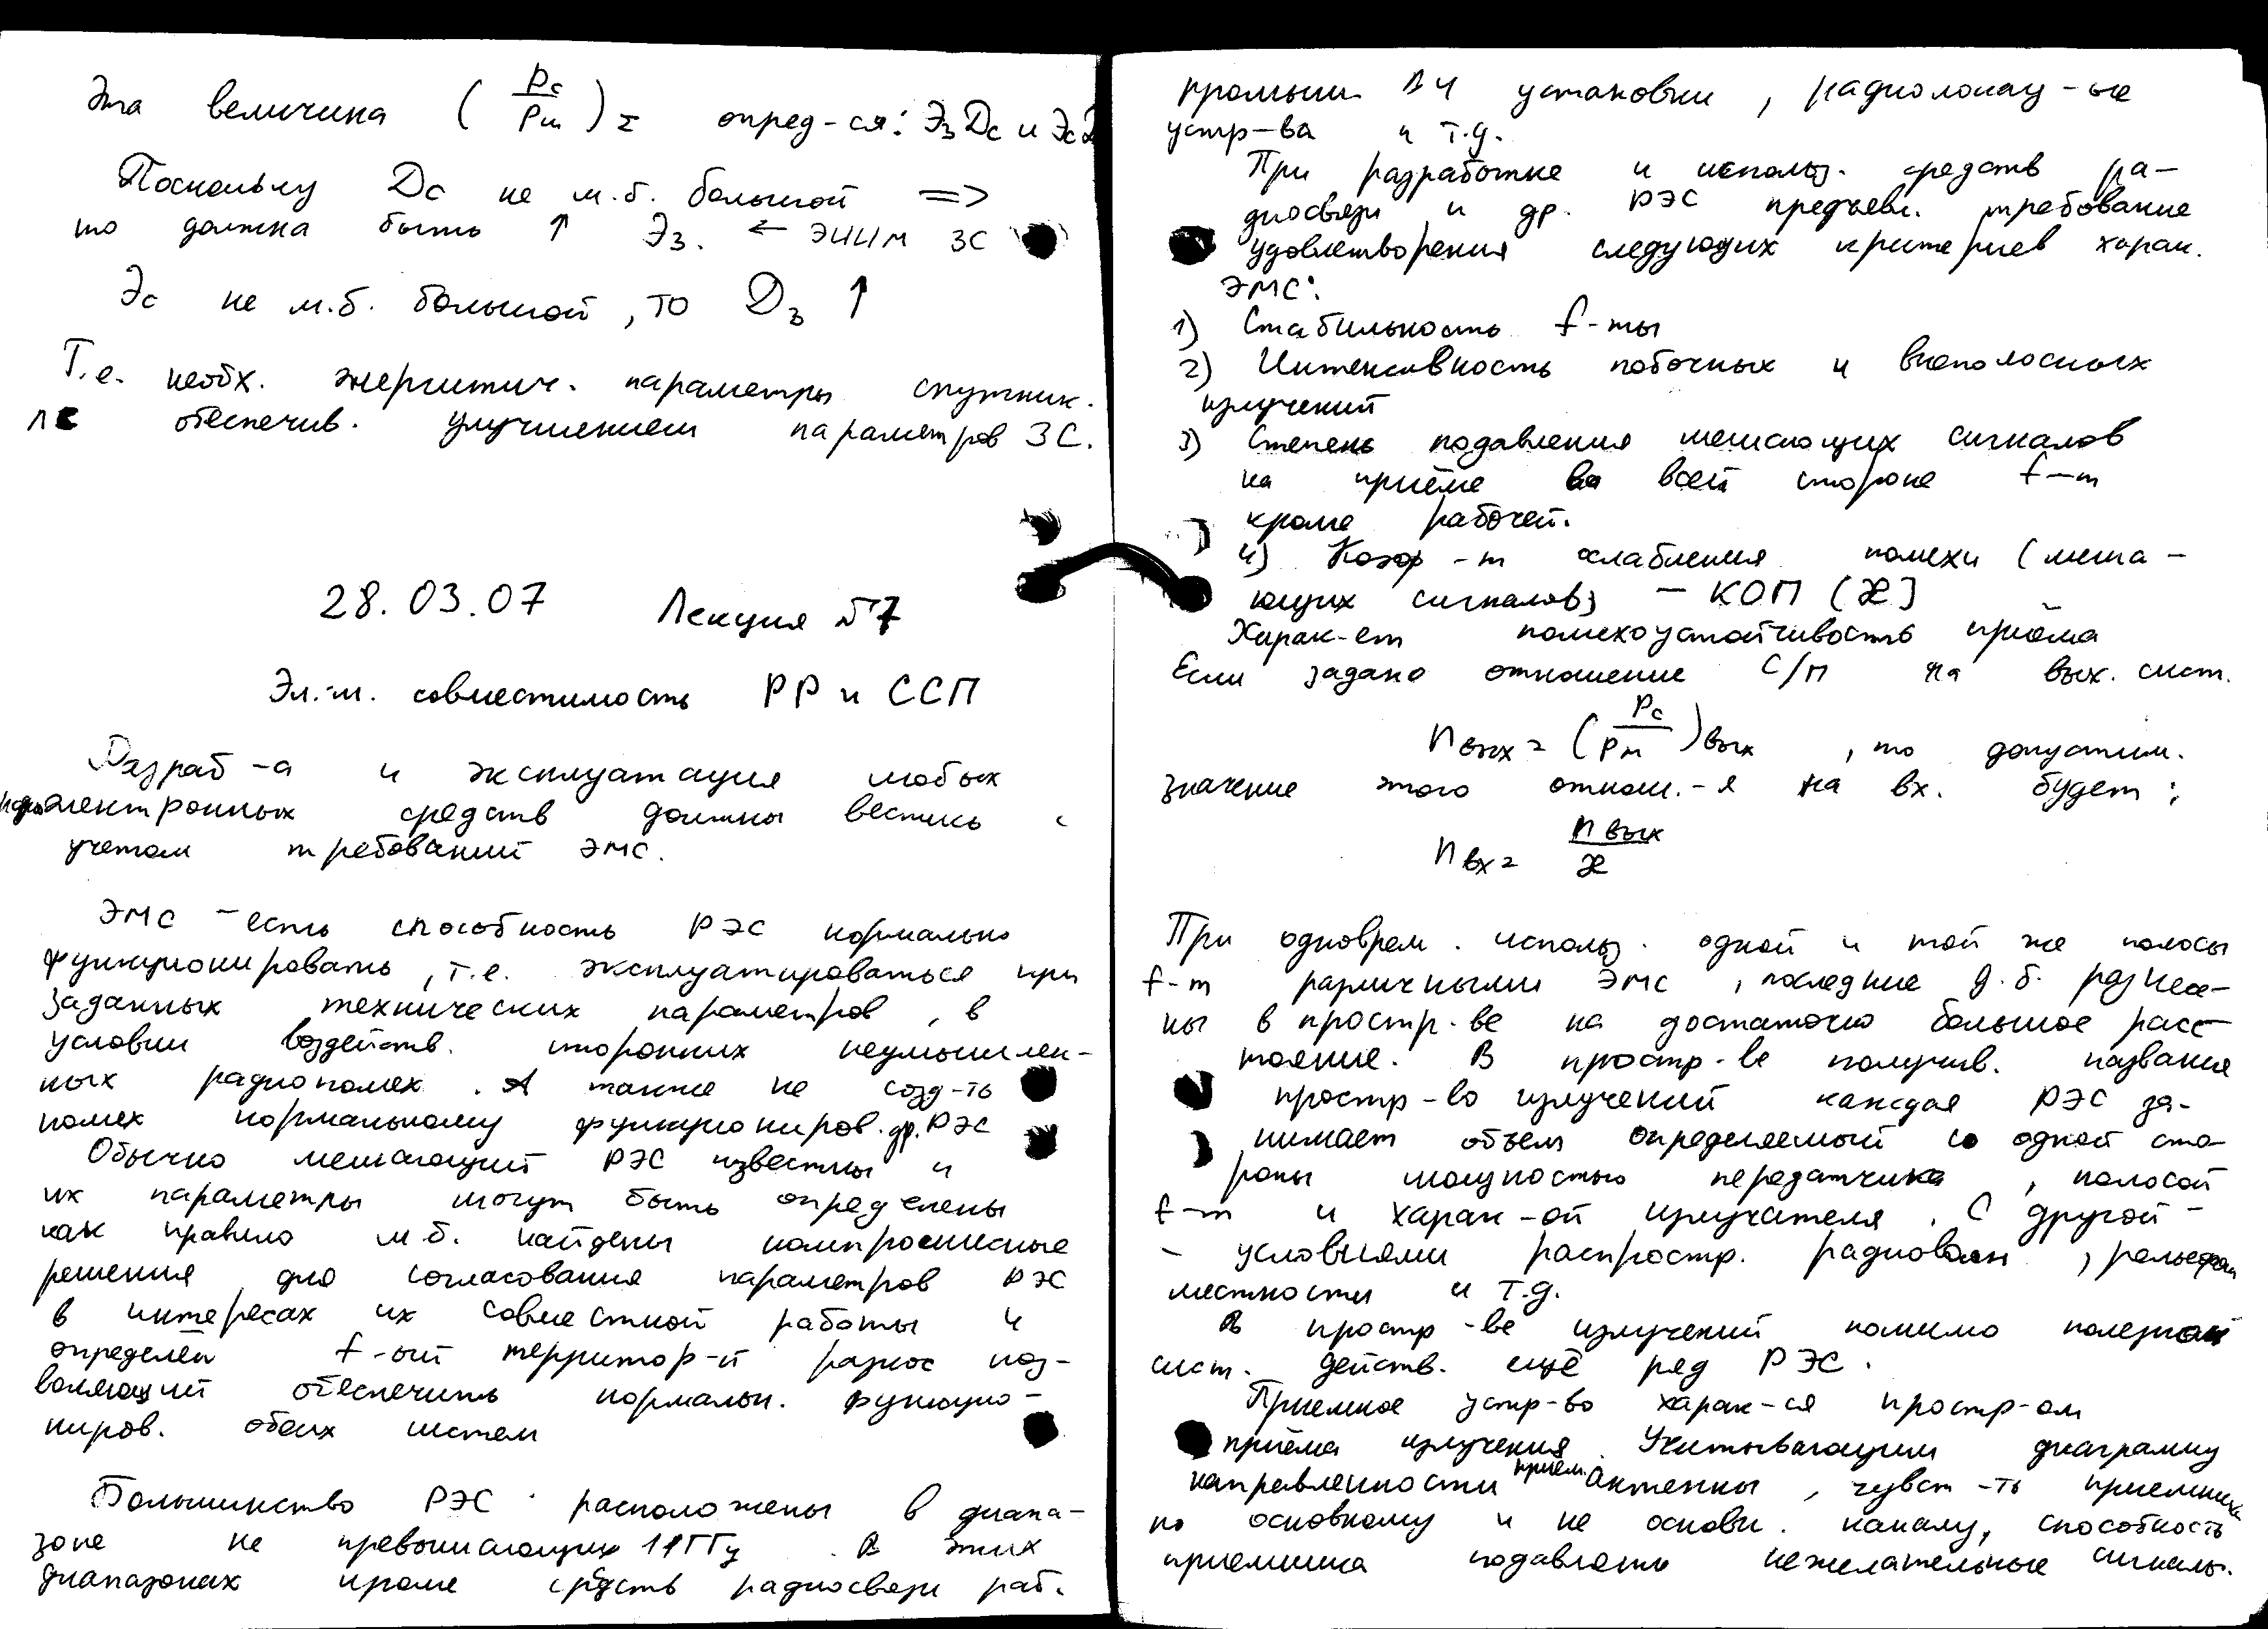 Эта величина (Pс/Pш)Σ опред-ся: Эз Dс и Эс D
Поскольку Dс не м.б. большой =>
то должна быть ↑ Эз. ← ЭИИМ ЗС
Эс не м.б. большой, то Dз ↑
Т.е. необх. энергитич. параметры спутник.
ЛС обеспечив. улучшением параметров ЗС.
28.03.07 Лекция №7
Эл.-м. совместимость РР и ССП
Разраб-а и эксплуатация любых
радиоэлектронных средств должны вестись с
учетом требований ЭМС.
ЭМС - есть способность РЭС нормально
функционировать, т.е. эксплуатироваться при
заданных технических параметров, в
условии воздейств. сторонних неумышлен-
ных радиопомех. А также не созд-ть
помех нормальному функциониров. др. РЭС
Обычно мешающий РЭС известны и
их параметры могут быть определены
как правило м.б. найдены компромисные
решения для согласования параметров РЭС
в интересах их совместной работы и
определён f-ый территор-й разнос поз-
воляющий обеспечить нормальн. функцио-
ниров. обеих систем
Большинство РЭС расположены в диапа-
зоне не превышающих 11ГГц. В этих
диапазонах кроме средств радиосвязи раб.
промышл. ВЧ установки, радиолокац-ые
устр-ва и т.д.
При разработке и использ. средств ра-
диосвязи и др. РЭС предъявл. требование
удовлетворения следующих критериев харак.
ЭМС:
1) Стабильность f-ты
2) Интенсивность побочных и внеполосных
излучений
3) Степень подавления мешающих сигналов
на приёме во всей стороне f-т
кроме рабочей.
4) Коэф-т ослабления помехи (меша-
ющих сигналов) - КОП (æ)
Харак-ет помехоустойчивость приёма
Если задано отношение С/П на вых. сист.
nвых = (Pс/Pп)вых, то допустим.
значение этого отнош.-я на вх. будет:
nвх = nвых/æ
При одноврем. использ. одной и той же полосы
f-т различными ЭМС, последние д.б. разнесе-
ны в простр-ве на достаточно большое расс-
тояние. В простр-ве получив. название
простр-во излучений каждая РЭС за-
нимает объем определяемый со одной сто-
роны мощностью передатчика, полосой
f-т и харак-ой излучателя. С другой -
- условиями распростр. радиоволн, рельефом
местности и т.д.
В простр-ве излучений помимо полезной
сист. действ. ещё ряд РЭС.
Приемное устр-во харак-ся простр-ом
приёма излучения. Учитывающим диаграмму
направленности прием. антенны, чувст-ть приемника
по основному и не основн. каналу, способность
приемника подавлять нежелательные сигналы.